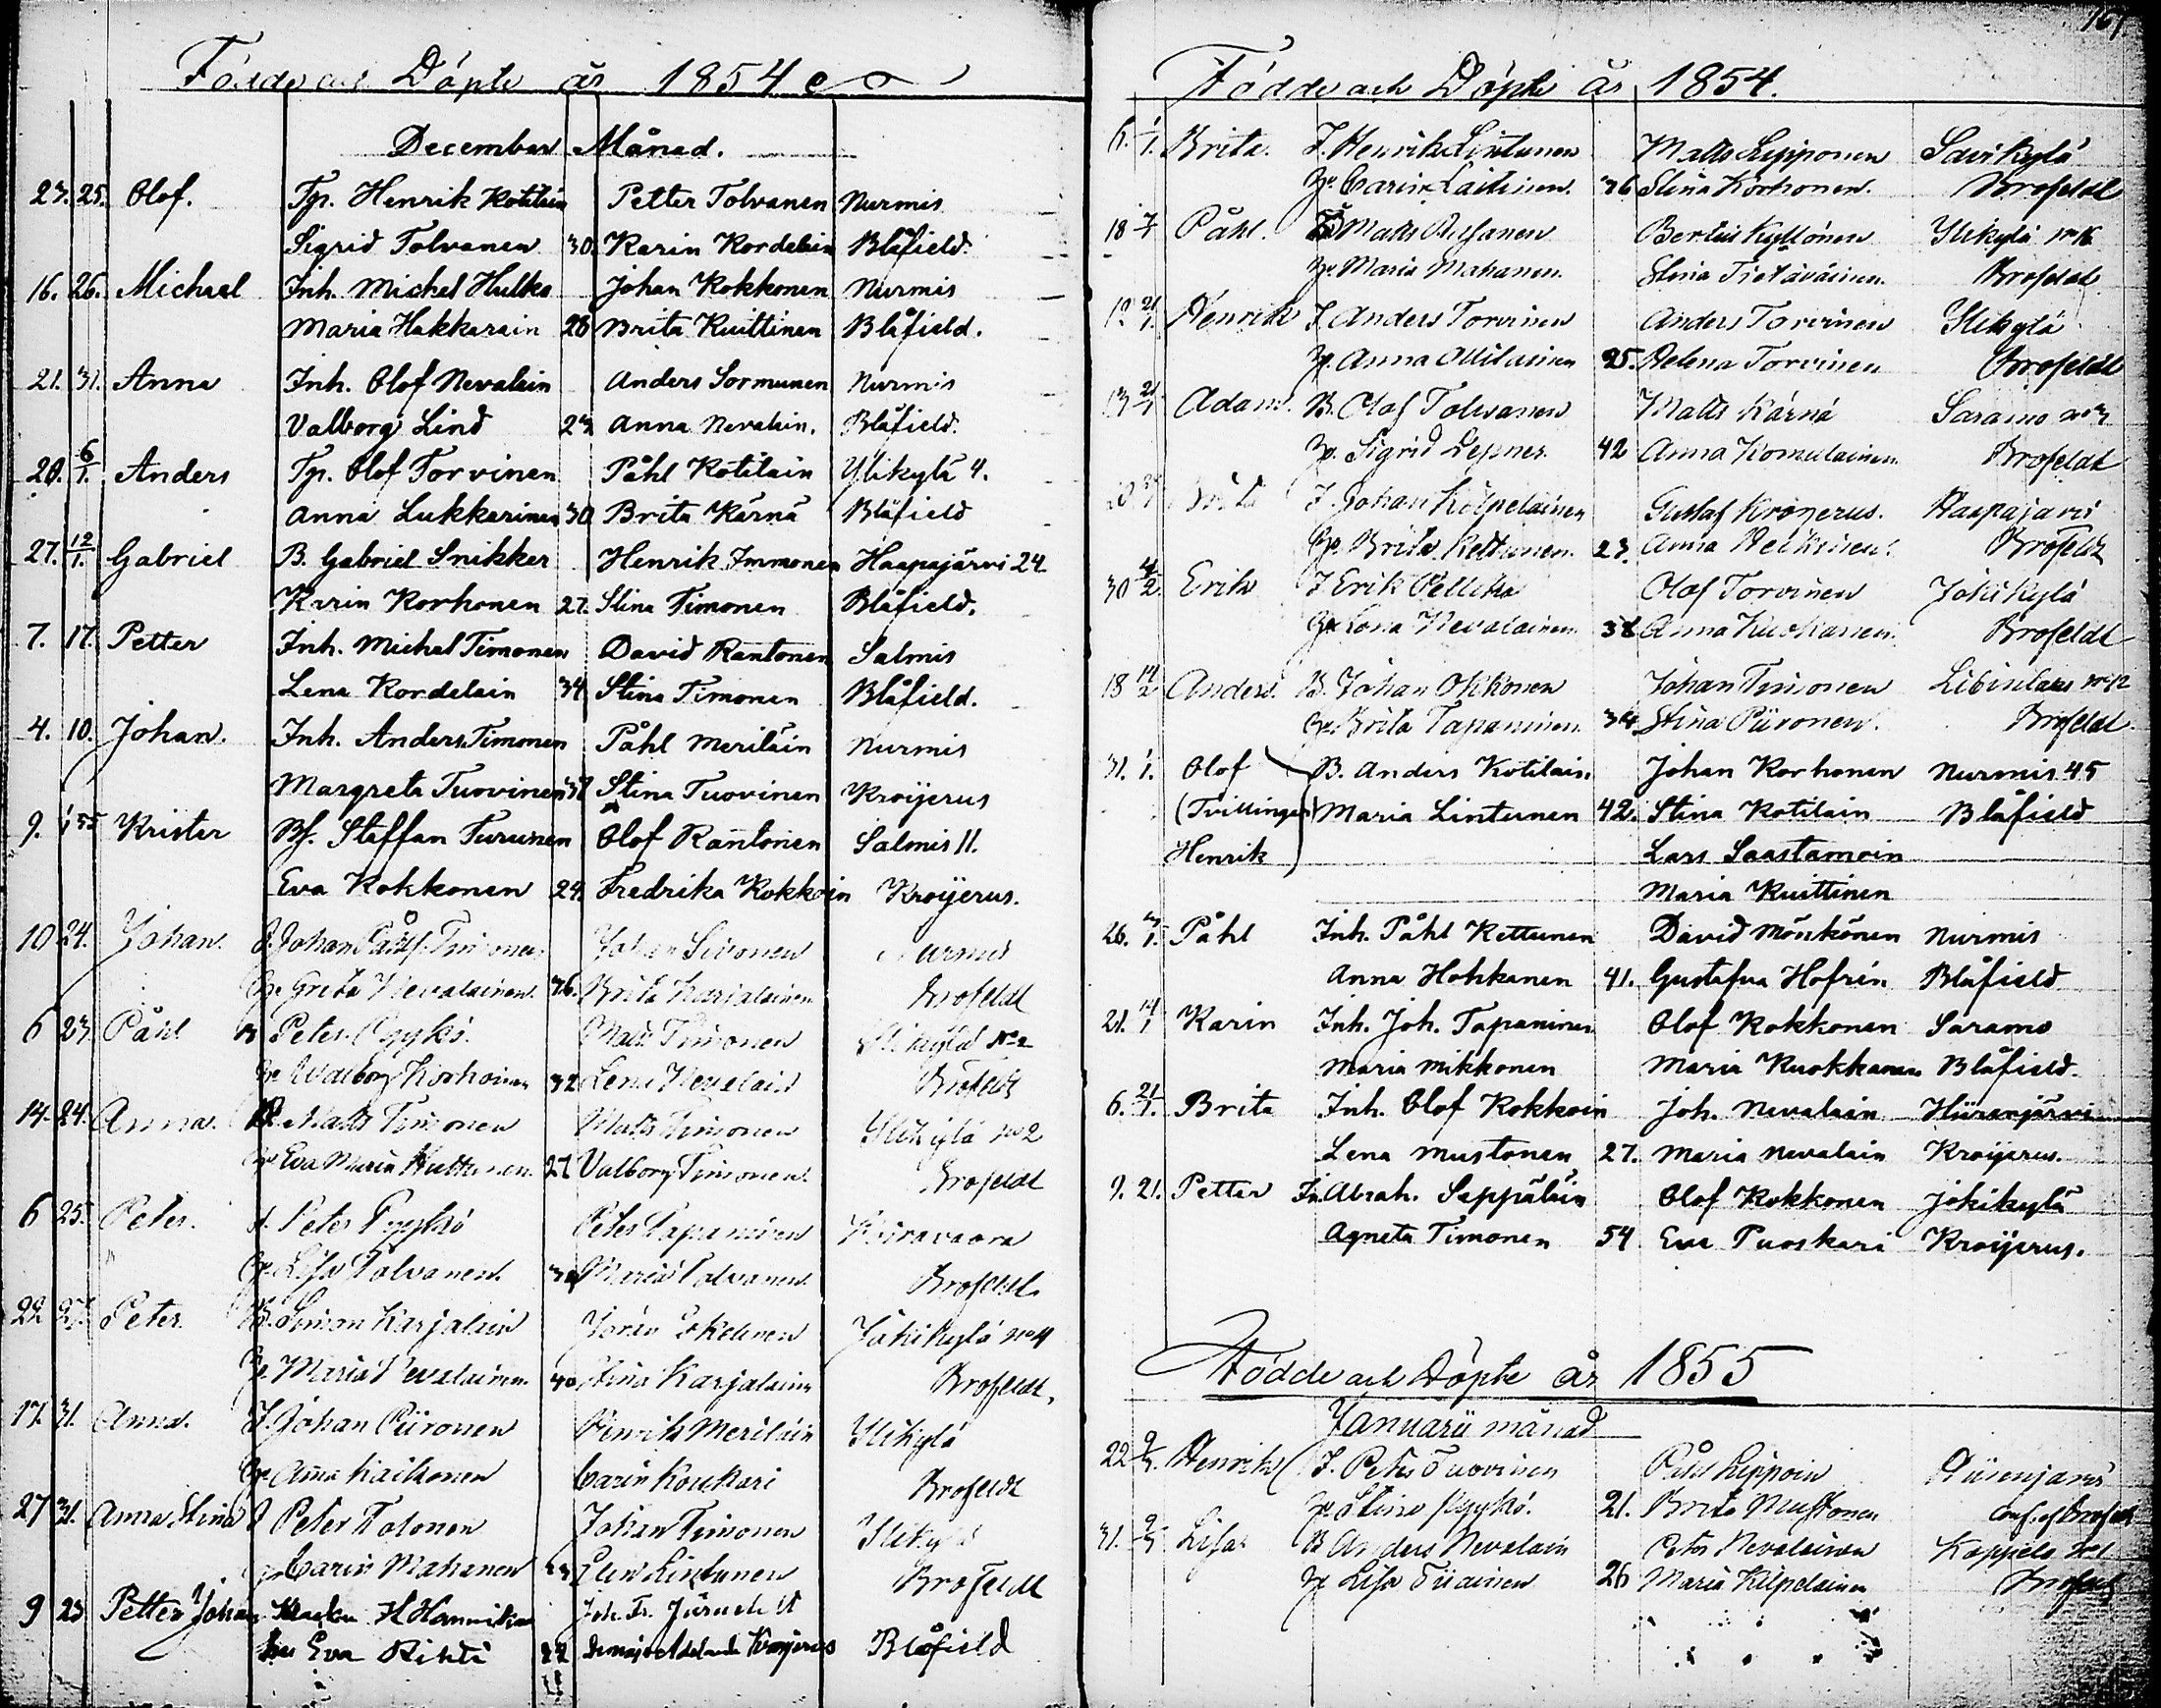 Födde och Döpte år 1854
December Månad.
23. 25. Olof. Tp. Henrik Kotilain Petter Tolvanen Nurmis
Sigrid Tolvanen 30. Karin Kordelain Blåfield.
16. 26. Michael Inh. Michel Hulko Johan Kokkonen Nurmis
Maria Hakkarain 28 Brita Kuittinen Blåfield.
21. 31. Anna Inh. Olof Nevalain Anders Sormunen Nurmis
Valborg Lind 23 Anna Nevalain. Blåfield.
20. 6/1. Anders Tp. Olof Torvinen Påhl Kotilain Ylikylä 4.
Anna Lukkarinen 30 Brita Kärnä Blåfield
27. 12/1. Gabriel B. Gabriel Snikker Henrik Immonen Haapajärvi 24
Karin Korhonen 27. Stina Timonen Blåfield.
7. 17. Petter Inh. Michel Timonen David Rantonen Salmis
Lena Kordelain 34 Stina Timonen Blåfield.
4. 10. Johan. Inh. Anders Timonen Påhl Meriläin Nurmis
Margreta Tuovinen 37 Stina Tuovinen Kroijerus
9. 1/1 55 Krister Bs. Staffan Turunen Olof Rantonen Salmis 11.
Eva Kokkonen 24. Fredrika Kokkoin Kroijerus.
10 24. Johan. J. Johan Påhls. Timonen Johan Sivonen Nurmis
Hu. Greta Nevalainen. 36. Brita Karialainen Brofeldt
6 23 Påhl B Peter Pyykö. Matts Timonen Ylikylä No 2
Hu Walborg Korhonen 32 Lena Nevalain Brofeldt
14. 24. Anna. B. Matts Timonen Matts Timonen Ylikylä No 2
Hu Eva Maria Huttunen. 27 Valborg Timonen. Brofeldt
6 25. Peter. J. Peter Pyykö Peter Tapaninen Koiravaara
Hu. Lisa Tolvanen. Maria Tolvanen. Brofeldt
22 27. Peter. B. Simon Karjalain Jöran Eskelinen Jokikylä No 4
Hu. Maria Nevalainen 40 Stina Karjalain Brofeldt.
17. 31. Anna. J. Johan Piironen Henrik Meriläin Ylikylä
Hu Anna Kaikonen Carin Koukari Brofeldt
27 31. Anna Stina J Peter Tolonen Johan Timonen Ylikylä
Hu Carin Mahanen 33 Elin Lintunen Brofeldt
9 23 Petter Johan H Hannikai Joh. Fr.
Eva Rihti 22 Kroijerus Blåfield
167.
Födde och Döpte år 1854.
6. 1/1. Brita. J. Henrik Lintunen Matts Lipponen Savikylä
Hu. Carin Laitinen. 36 Stina Korhonen. Brofeldt
18 7/1 Påhl. Matts Bertill Kyllönen Ylikylä No 16
Hu. Maria Mahanen. Stina Tietäväinen. Brofeldt.
19. 21/1. Henrik J. Anders Torvinen Anders Torvinen Ylikylä
Hu. Anna Ollilainen 25. Helena Torvinen Brofeldt
13 21/1 Adam. B. Olof Tolvanen Matts Kärnä Saramo No 3
Hu. Sigrid Lespner. 42 Anna Komulainen. Brofeldt
Brita J. Johan Kolpelainen Gustaf Krogerus. Haapajärvi
Hu. Brita Kettunen. 23. Anna Heikinen. Brofeldt
30 4/2. Erik J Erik Pellika Olof Torvinen Jokikylä
Hu Lona Nevalainen. 38 Anna Kuokanen. Brofeldt
18 14/2 Anders. B. Johan Okkonen Johan Timonen Libinlaks No 12
Hu. Brita Tapaninen. 34 Stina Piironen. Brofeldt.
31. 1/1. Olof B. Anders Kotilain. Johan Korhonen Nurmis 45
(Tvillingar) Maria Lintunen 42. Stina Kotilain Blåfield
Henrik Lars Saastamoin
Maria Kuittinen
26. 3/1. Påhl Inh. Påhl Kettunen David Mönkönen Nurmis
Anna Hokkanen 41. Gustafva Hofrén Blåfield
21. 14/1 Karin Inh. Joh. Tapaninen Olof Kokkonen Saramo
Maria Mikkonen Maria Kuokkanen Blåfield.
6. 21/1. Brita Inh. Olof Kokkoin Joh. Nevalain Hiirenjärvi
Lena Mustonen 27. Maria Nevalain Kroijerus.
9. 21. Petter In. Abrah. Seppäläin Olof Kokkonen Jokikylä
Agneta Timonen 54 Eva Puoskari Kroijerus.
Födde och Döpte år 1855
Januarii månad
22 9/3. Henrik J. Peter Tuovinen Påhl Lippoin Hiirenjärvi
Hu Stina Pyykö. 21. Brita Mustonen Conf. af Brofeldt
31. 9/3 Lisa B Anders Nevalain Peter Nevalainen Kappela No 1
Hu Lisa Tiiainen 26 Maria Kilpelainen Brofeldt